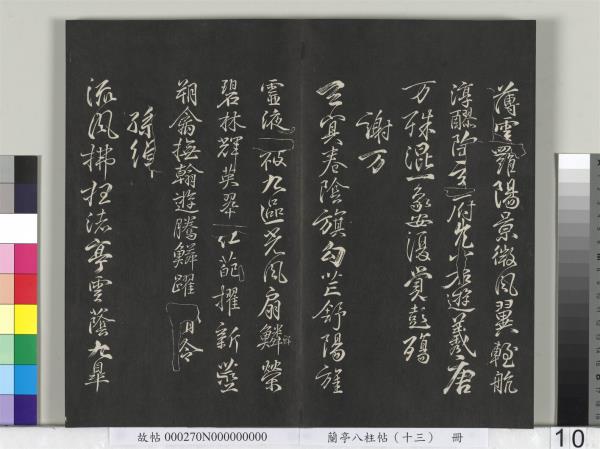 薄雲羅陽景微風翼輕航
淳醪陶玄府兀若遊羲唐
万殊混一象安復覺彭殤
謝万
冥卷陰旗勾芒舒陽旌
靈液被九區光風扇鱗榮
碧林輝英翠葩擢新莖
翔禽撫翰遊騰鱗躍
孫綽
流風拂枉渚亭雲蔭九皋
故帖 000270N000000000 蘭亭八柱帖（十三） 冊
10